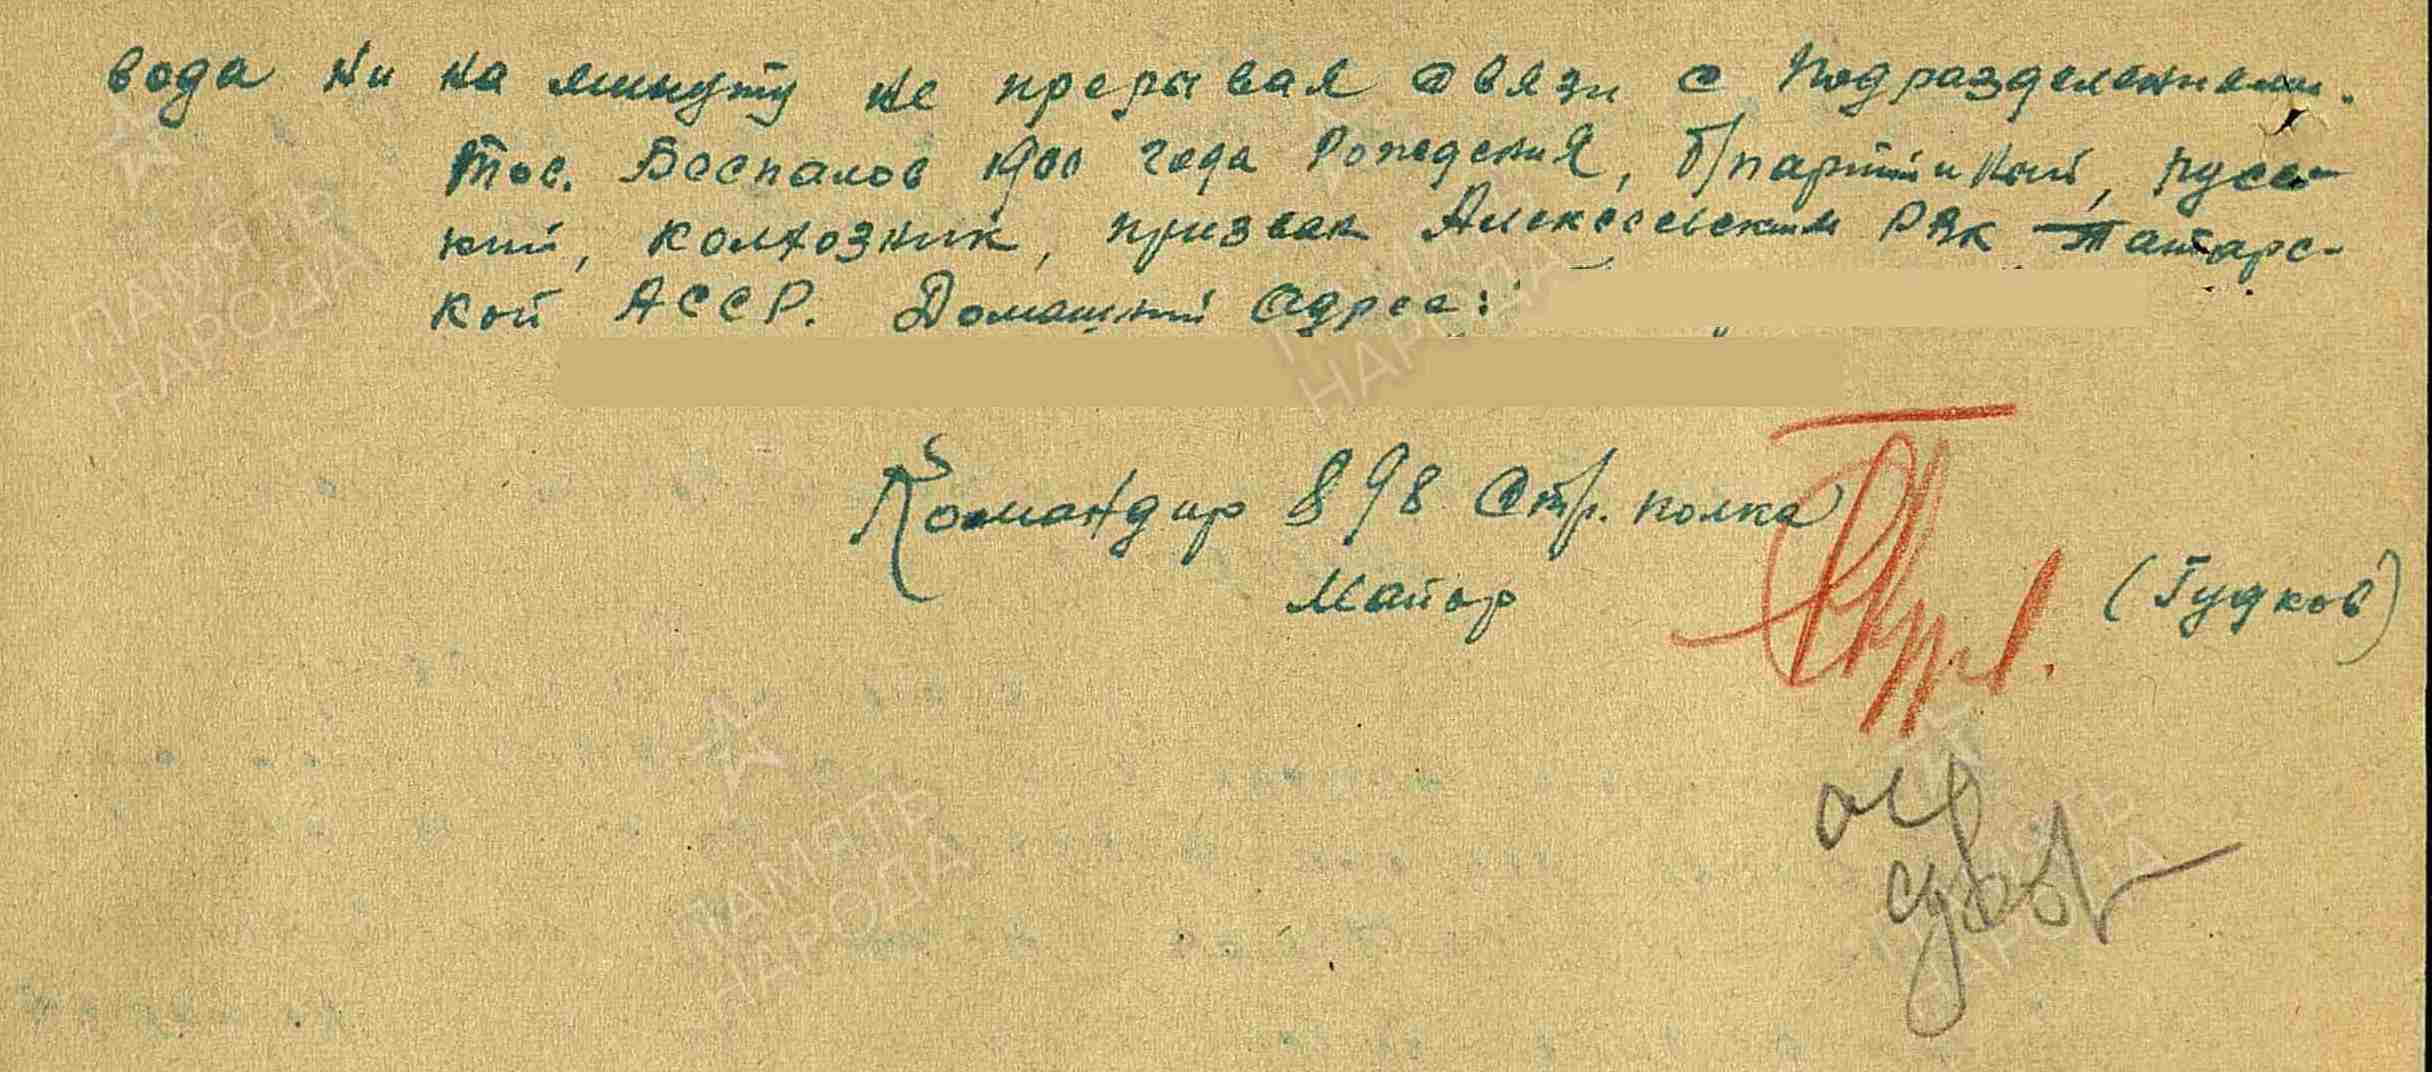 вода ни на минуту не прерывая связи с подразделениями.
Тов. Беспалов 1900 года рождения, б/партийный, русс-
кий, колхозник, призван Алексеевским РВК Татарс-
кой АССР. Домашний адрес:
Командир 898 Стр. полка
Майор (Гудков)
ПАМЯТЬ
НАРОДА
ПАМЯТЬ
НАРОДА
ПАМЯТЬ
НАРОДА
ПАМЯТЬ
НАРОДА